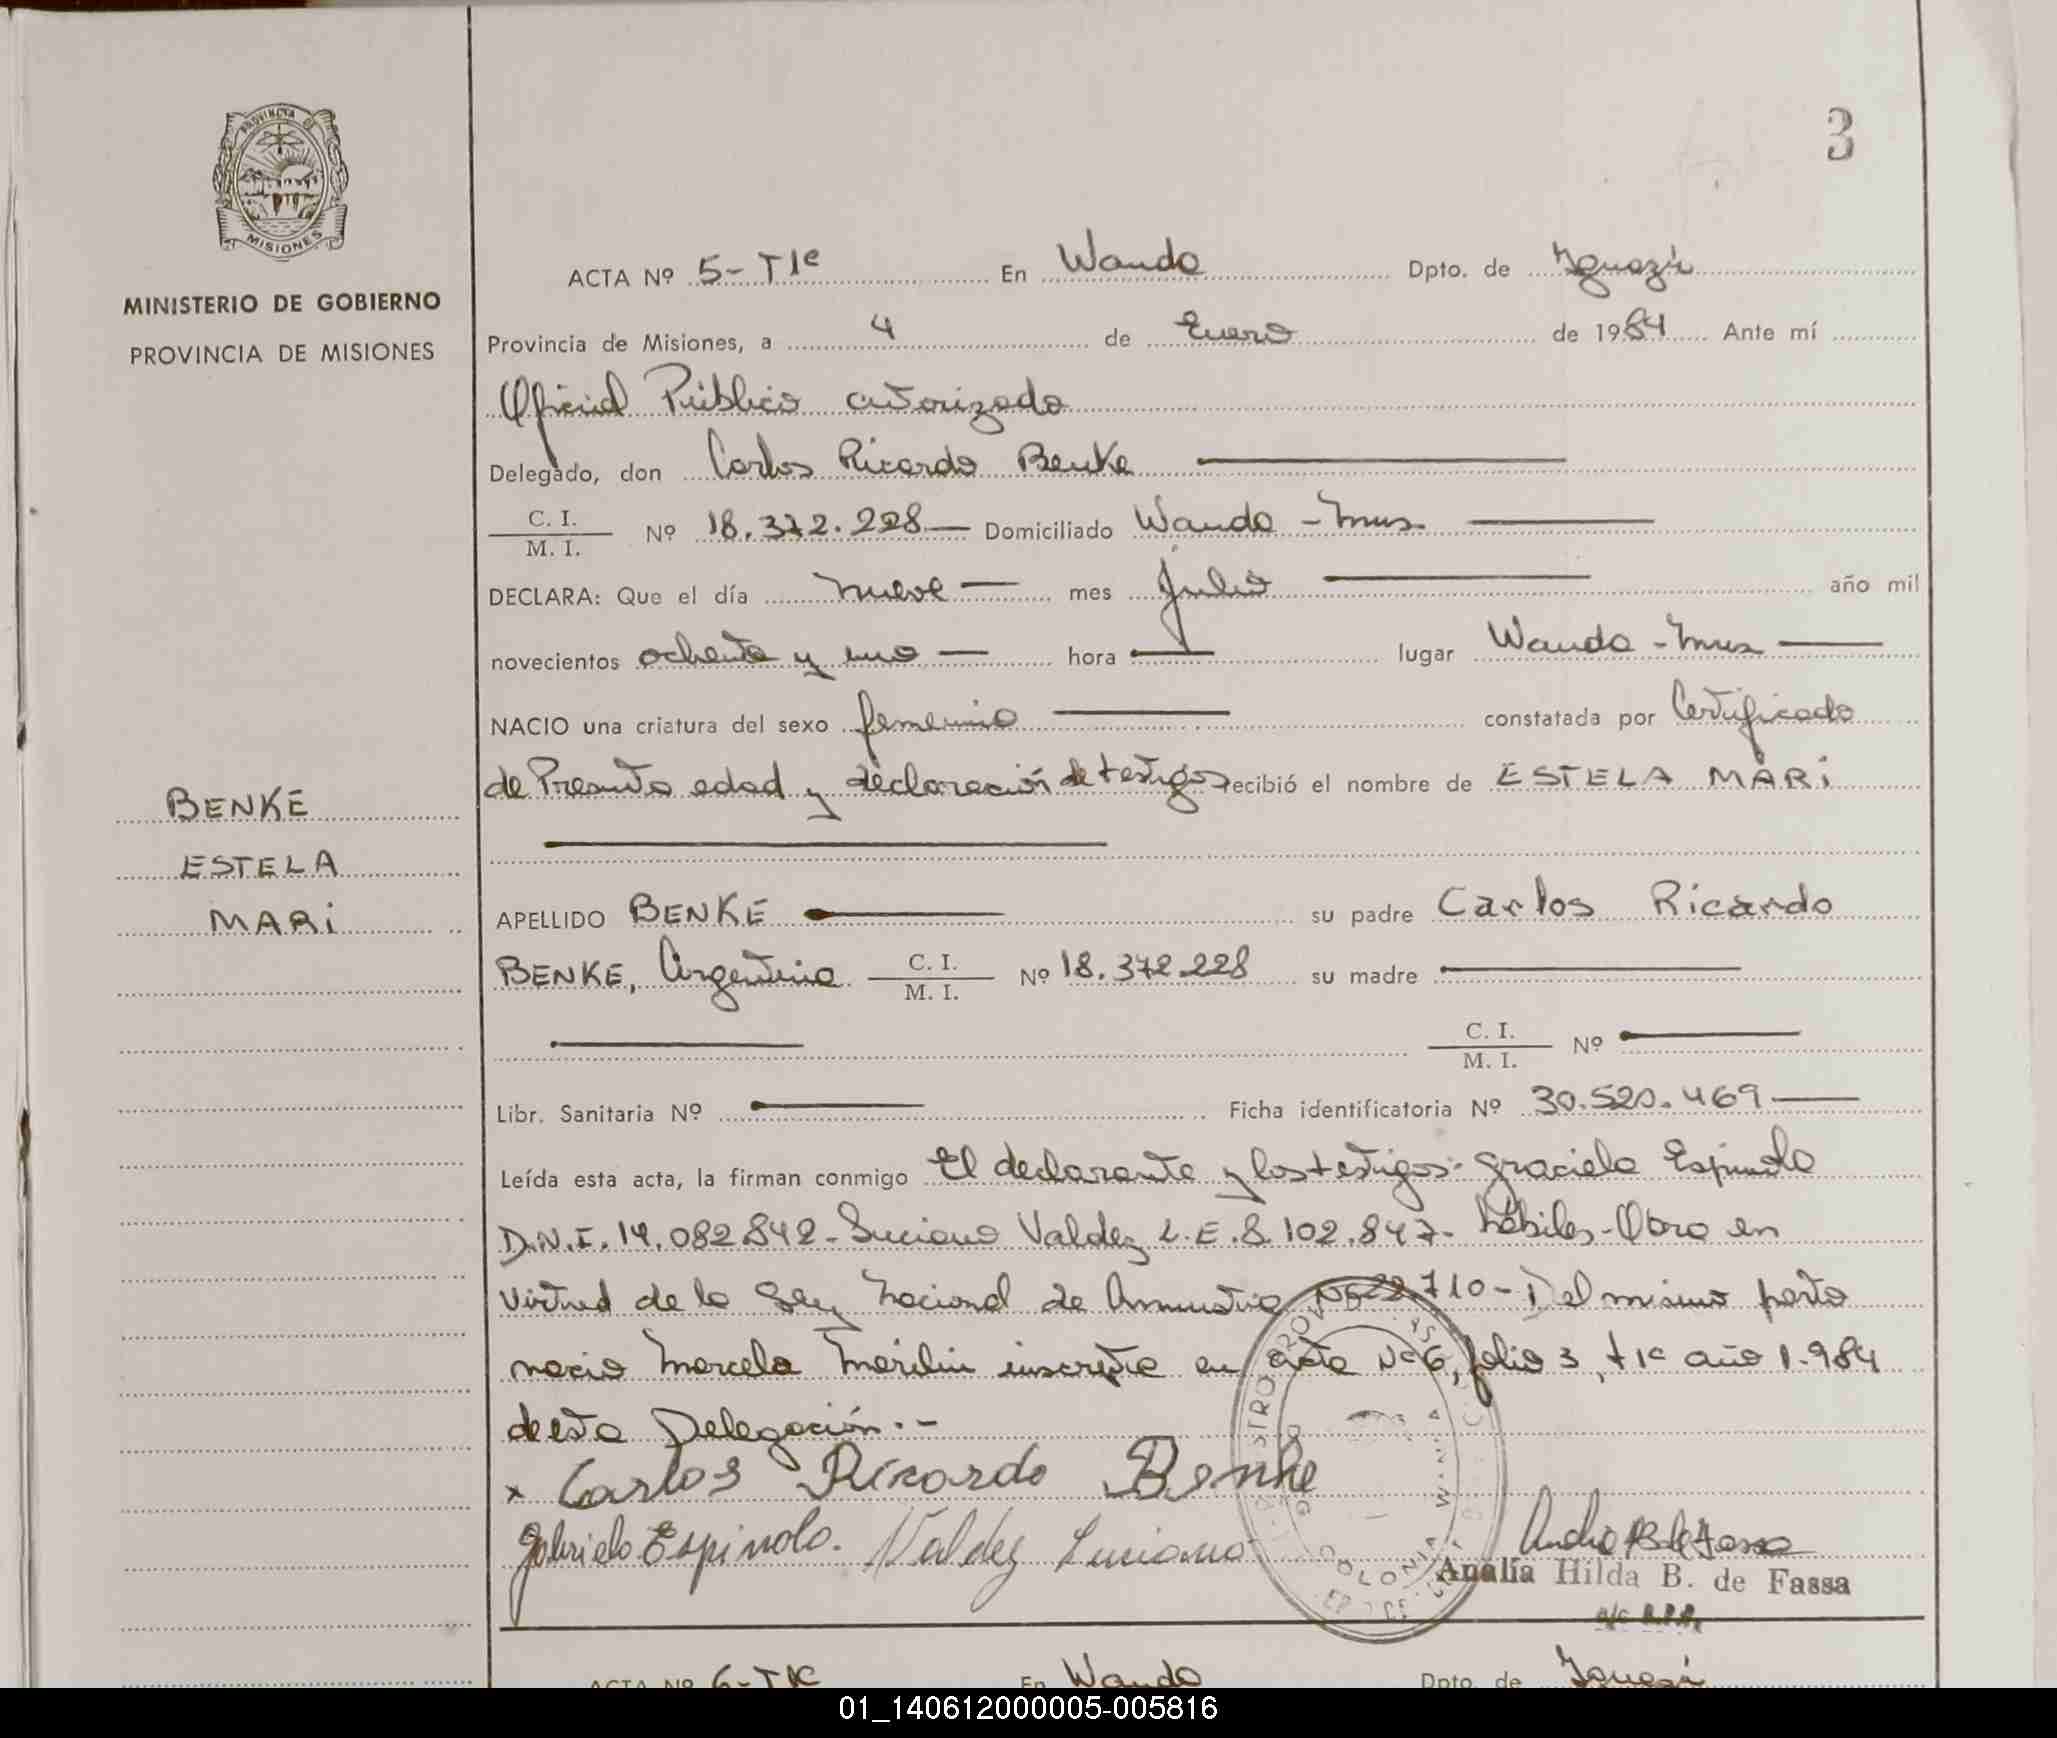 3
PROVINCIA DE
MISIONES
MINISTERIO DE GOBIERNO
PROVINCIA DE MISIONES
BENKE
ESTELA
MARi
ACTA Nº 5-T1º En Wanda Dpto. de Iguazú
Provincia de Misiones, a 4 de Enero de 1984 Ante mí
Oficial Público autorizado
Delegado, don Carlos Ricardo Benke
C. I. / M. I. Nº 18.372.228 Domiciliado Wanda - Mnes
DECLARA: Que el día nueve mes Julio año mil
novecientos ochenta y uno hora lugar Wanda - Mnes
NACIO una criatura del sexo femenino constatada por Certificado
de Presunta edad y declaración de testigos recibió el nombre de ESTELA MARi
APELLIDO BENKE su padre Carlos Ricardo
BENKE, Argentino C. I. / M. I. Nº 18.372.228 su madre
C. I. / M. I. Nº
Libr. Sanitaria Nº Ficha identificatoria Nº 30.520.469
Leída esta acta, la firman conmigo El declarante y los testigos: Graciela Espindola
D.N.I. 14.082.842 - Luciano Valdez L.E. 8.102.847 - hábiles - Obra en
virtud de la Ley Nacional de Amnistia Nº 22.710 - Del mismo parto
nacio Marcela Marilin inscripta en acta Nº 6, folio 3, t 1º año 1.984
de esta Delegación.-
x Carlos Ricardo Benke
Gabriela Espinola. Valdez Luciano
Analía Hilda B. de Fassa
ACTA Nº 6-T1º En Wanda Dpto. de Iguazú
01_140612000005-005816